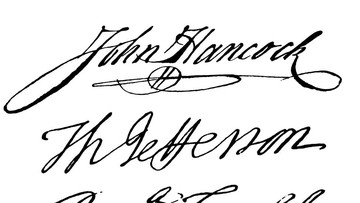 John Hancock
Th Jefferson